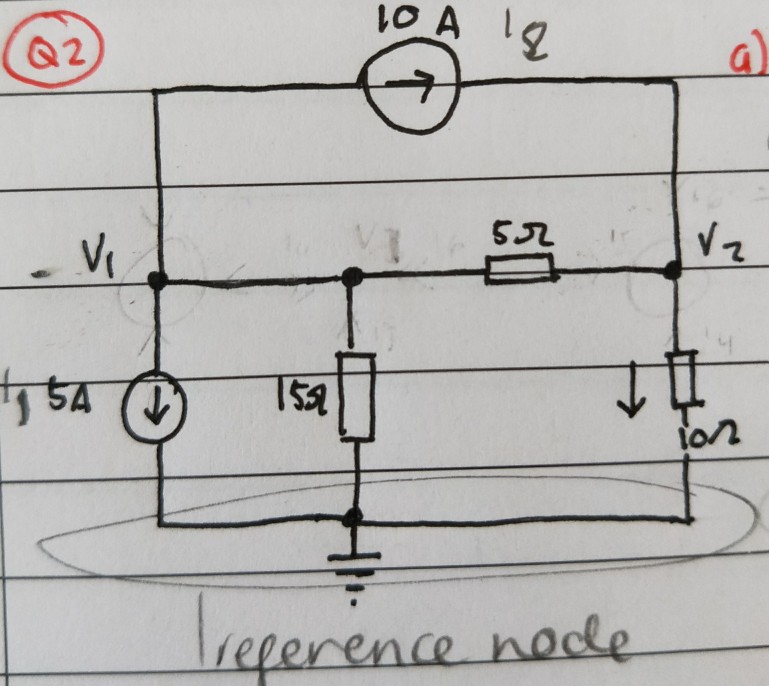 Q2
10 A I2
a)
5Ω
V1
V2
I1 5A
15Ω
10Ω
reference node